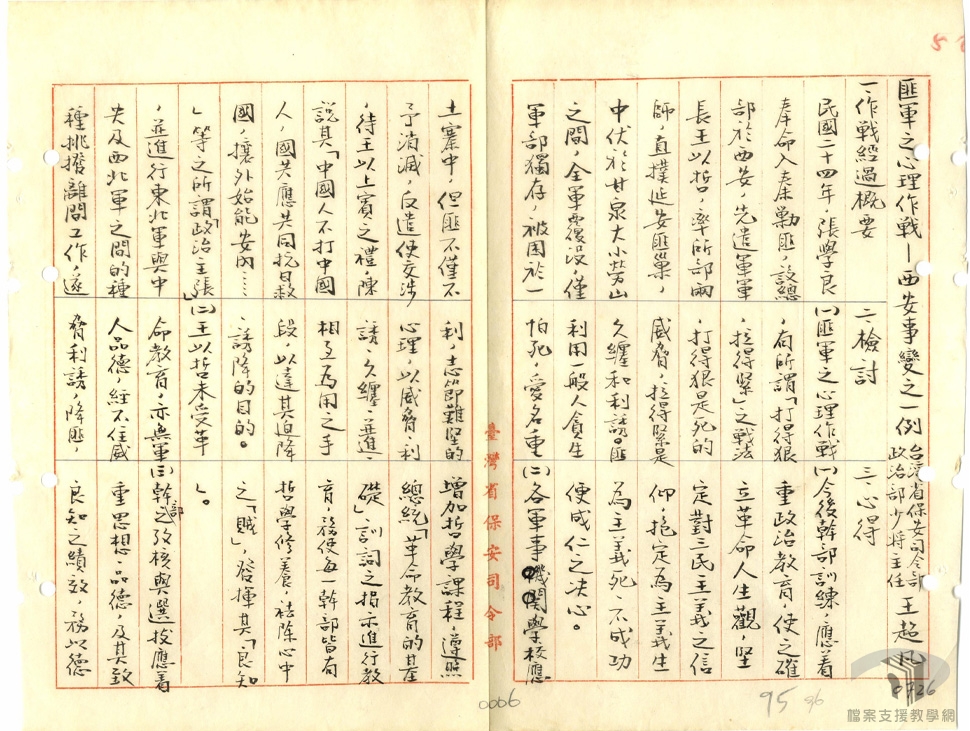 匪軍之心理作戰—西安事變之一例
台灣省保安司令部
政治部少將主任
王超凡
一、作戰經過概要
民國二十四年,張學良
奉命入秦勦匪,設總
部於西安,先遣軍軍
長王以哲,率所部兩
師,直撲延安匪巢,
中伏於甘泉大小勞山
之間,全軍覆没,僅
軍部獨存,被困於一
土寨中,但匪不僅不
予消滅,反遣使交涉
,待王以上賓之禮,陳
說其「中國人不打中國
人,國共應共同抗日救
國,攘外始能安內……
」等之所謂「政治主張」
,並進行東北軍與中
央及西北軍之間的種
種挑撥離間工作,遂
二、檢討
(一)匪軍之心理作戰
,有所謂「打得狠
,拉得緊」之戰法
,打得狠是死的
威脅,拉得緊是
久纏和利誘。匪
利用一般人貪生
怕死,愛名重
利,志節難堅的
心理,以威脅、利
誘、久纏、並進、
相互為用之手
段,以達其迫降
、誘降的目的。
(二)王以哲未受革
命教育,亦無軍
人品德,經不住威
脅利誘,降匪,
三、心得
(一)今後幹部訓練,應着
重政治教育,使之確
立革命人生觀,堅
定對三民主義之信
仰,抱定為主義生
為主義死,不成功
便成仁之决心。
(二)各軍事機関學校應
增加哲學課程,遵照
總統「革命教育的基
礎」訓詞之揭示進行教
育,務使每一幹部皆有
哲學修養,袪除心中
之「賊」,發揮其「良知
」。
(三)幹部之攷核與選拔應着
重思想、品德,及其致
良知之績效,務以德
臺灣省保安司令部
0006
95
96
0726
檔案支援教學網